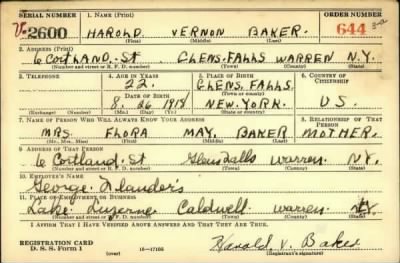 SERIAL NUMBER 1. NAME (Print) ORDER NUMBER
V. 2600 HAROLD VERNON BAKER. 644
(First) (Middle) (Last)
2. ADDRESS (Print)
6 CORTLAND. ST GLENS. FALLS WARREN N.Y.
(Number and street or R. F. D. number) (Town) (County) (State)
3. TELEPHONE 4. AGE IN YEARS 5. PLACE OF BIRTH 6. COUNTRY OF CITIZENSHIP
22. GLENS. FALLS.
DATE OF BIRTH (Town or county)
8. 26 1918 NEW. YORK. U.S.
(Exchange) (Number) (Mo.) (Day) (Yr.) (State or country)
7. NAME OF PERSON WHO WILL ALWAYS KNOW YOUR ADDRESS 8. RELATIONSHIP OF THAT PERSON
MRS. FLORA MAY. BAKER MOTHER.
(Mr., Mrs., Miss) (First) (Middle) (Last)
9. ADDRESS OF THAT PERSON
6 Cortland. St Glens Falls Warren N.Y.
(Number and street or R. F. D. number) (Town) (County) (State)
10. EMPLOYER'S NAME
George. Flander's
11. PLACE OF EMPLOYMENT OR BUSINESS
Lake. Luzerne Caldwell. Warren N.Y.
(Number and street or R. F. D. number) (Town) (County) (State)
I AFFIRM THAT I HAVE VERIFIED ABOVE ANSWERS AND THAT THEY ARE TRUE.
REGISTRATION CARD
D. S. S. Form 1 (over) 16—17105 Harold V. Baker
(Registrant's signature)